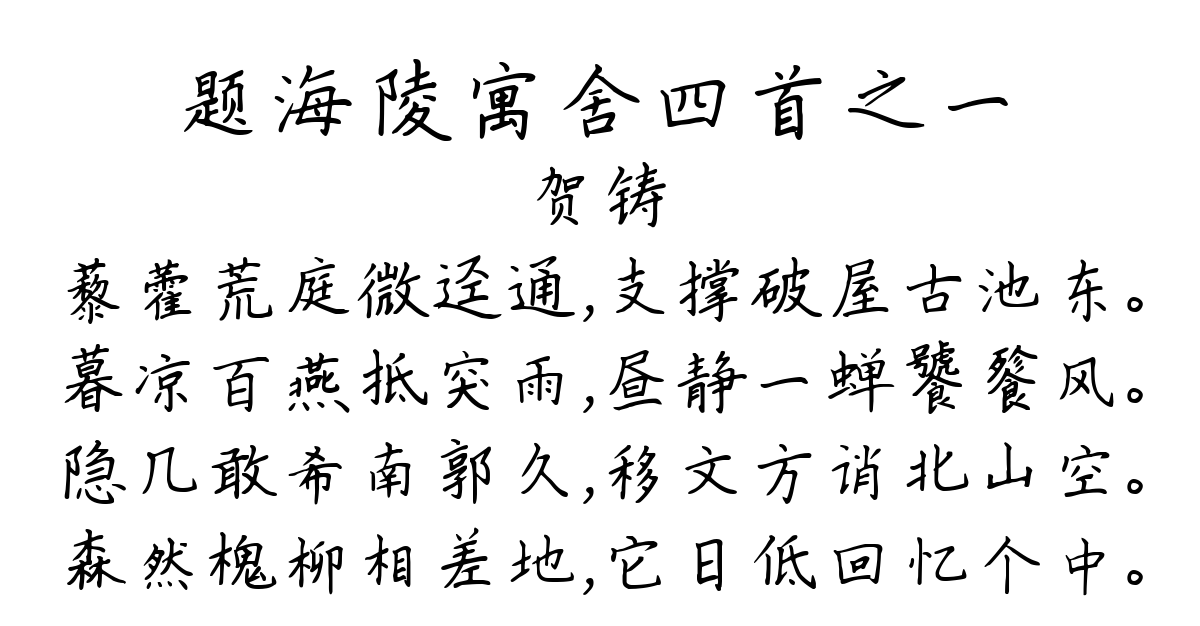 题海陵寓舍四首之一
贺铸
藜藿荒庭微迳通,支撑破屋古池东。
暮凉百燕抵突雨,昼静一蝉饕餮风。
隐几敢希南郭久,移文方诮北山空。
森然槐柳相差地,它日低回忆个中。